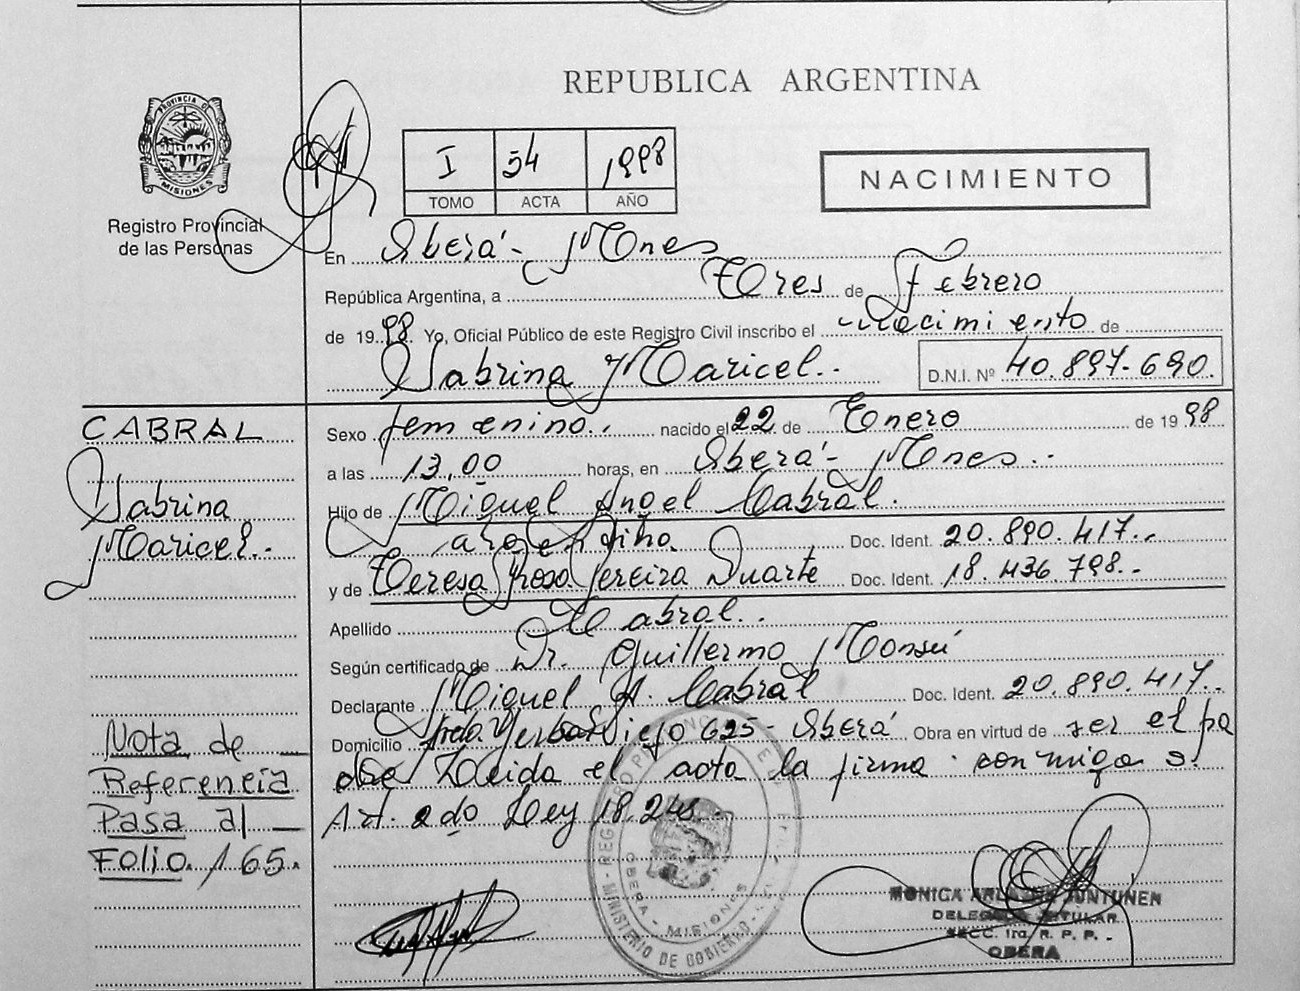 REPUBLICA ARGENTINA
PROVINCIA DE
MISIONES
Registro Provincial
de las Personas
I 54 1998
TOMO ACTA AÑO
NACIMIENTO
En Oberá - Mnes
República Argentina, a Tres de Febrero
de 1998 Yo, Oficial Público de este Registro Civil inscribo el nacimiento de
Sabrina Maricel.. D.N.I. Nº 40.897-690.
CABRAL
Sabrina
Maricel..
Sexo femenino.. nacido el 22 de Enero de 1998
a las 13,00 horas, en Oberá - Mnes..
Hijo de Miguel Angel Cabral.
argentino Doc. Ident. 20.890.417..
y de Teresa Rosa Pereira Duarte Doc. Ident. 18.436.798..
Apellido Cabral..
Según certificado de Dr. Guillermo Monsú
Declarante Miguel A. Cabral Doc. Ident. 20.890.417..
Domicilio Yerbal Viejo 625 - Oberá Obra en virtud de ser el pa
dre Leida el acta la firma conmigo s.
Art. 2do Ley 18.248.
Nota de
Referencia
Pasa al
Folio 165.
OBERA - MISIONES
MINISTERIO DE GOBIERNO
MONICA JUNTUNEN
DELEGADA TITULAR
SECC. 1ra. R. P. P. -
OBERA